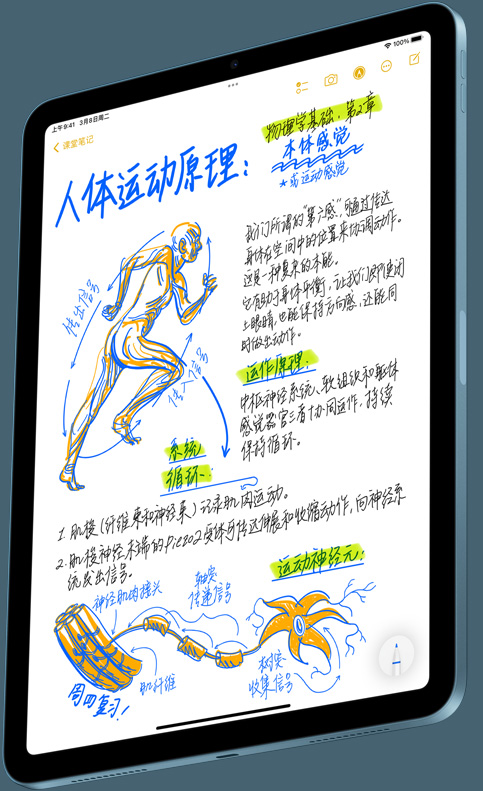 上午9:41 3月8日周二
100%
课堂笔记
物理学基础：第2章
本体感觉
★或运动感觉
人体运动原理：
我们所谓的“第六感”，可通过传达
身体在空间中的位置来协调动作。
这是一种复杂的本能。
它有助于身体平衡，让我们即使闭
上眼睛，也能保持方向感，还能同
时做出动作。
传出信号
传入信号
运作原理：
中枢神经系统、软组织和躯体
感觉器官三者协同运作，持续
保持循环。
系统
循环：
1. 肌梭（纤维束和神经束）记录肌肉运动。
2. 肌梭神经末端的Piezo2受体可传达伸展和收缩动作，向神经系
统发出信号。
运动神经元：
神经肌肉接头
轴突
传递信号
肌纤维
树突
收集信号
周四复习！